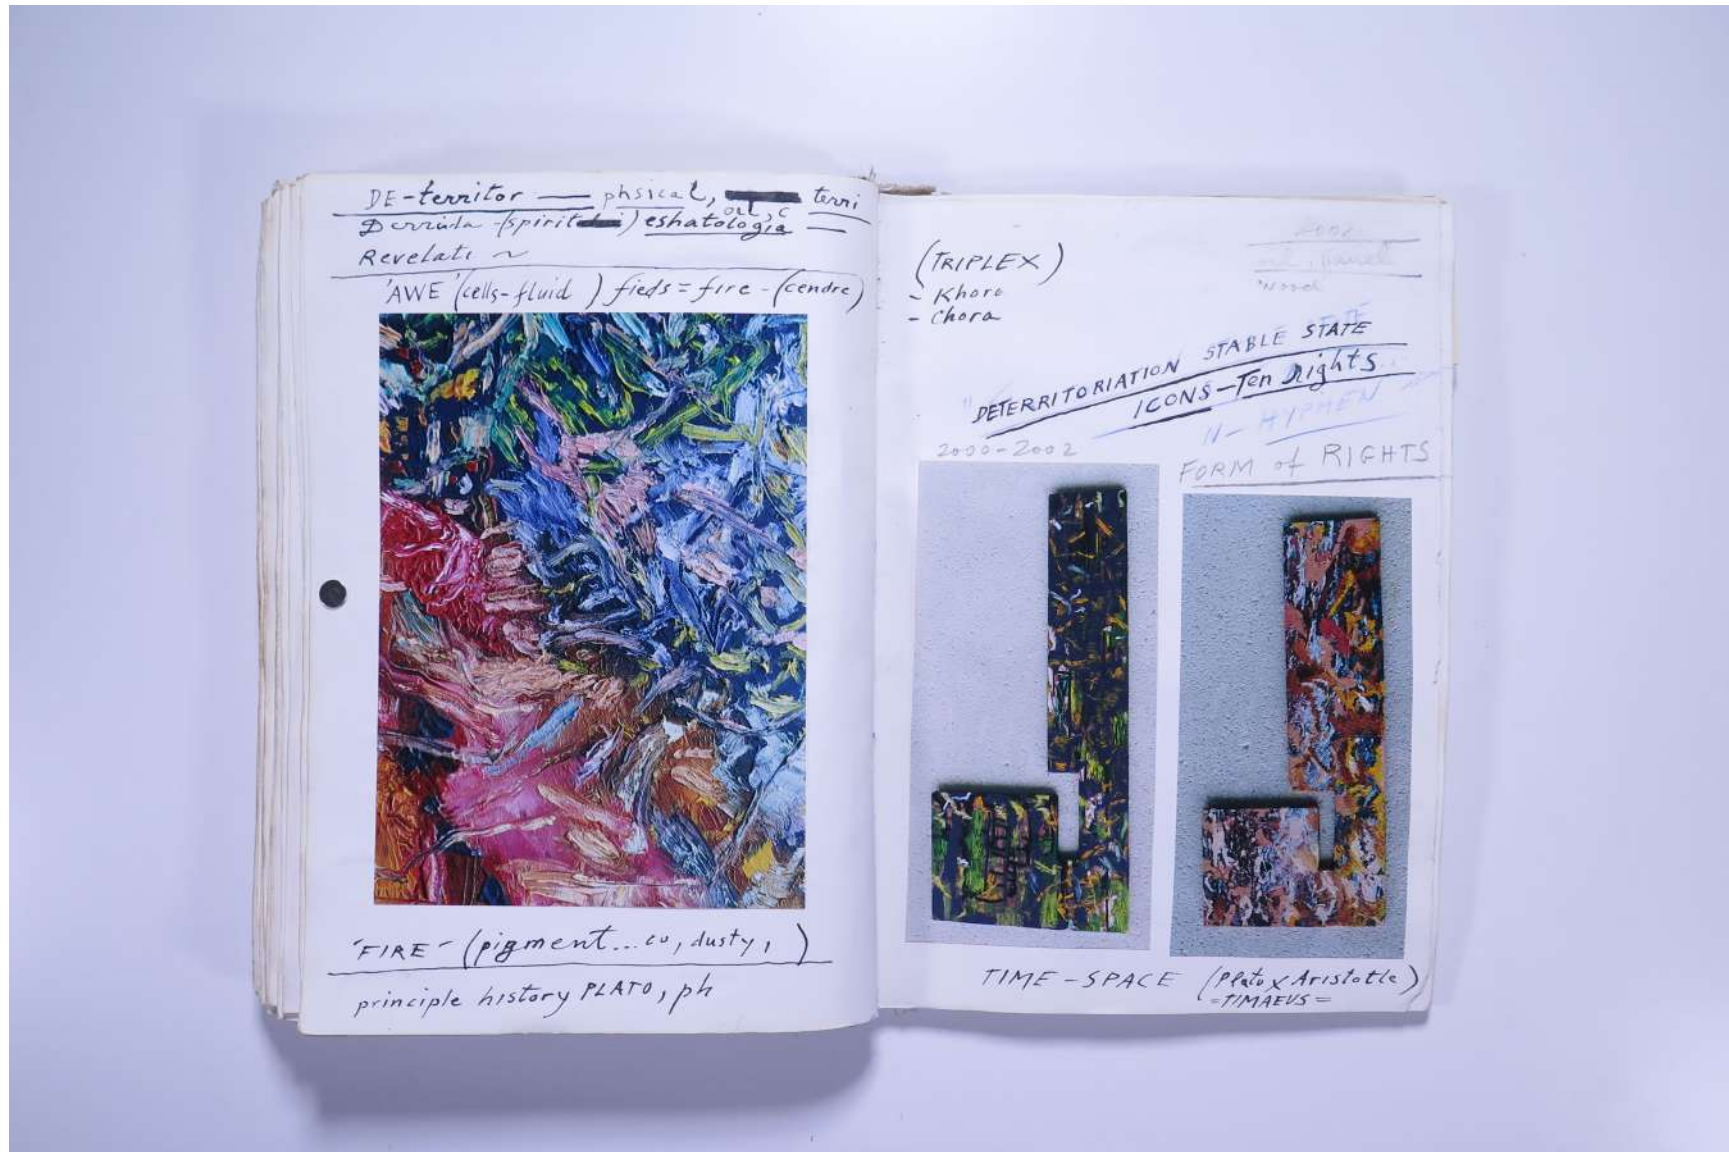 DE-territor — phsical, terri
Derrida - (spirit ) eshatologia —
Revelati ~
'AWE' (cells-fluid ) fieds = fire - (cendre)
'FIRE' - (pigment... cu, dusty, )
principle history PLATO, ph
(TRIPLEX)
- Khora
- Chora
2002
wood
"DETERRITORIATION STABLE STATE
ICONS - Ten rights
N - HYPHEN
2000-2002
FORM of RIGHTS
TIME - SPACE (Plato x Aristotle)
= TIMAEUS =